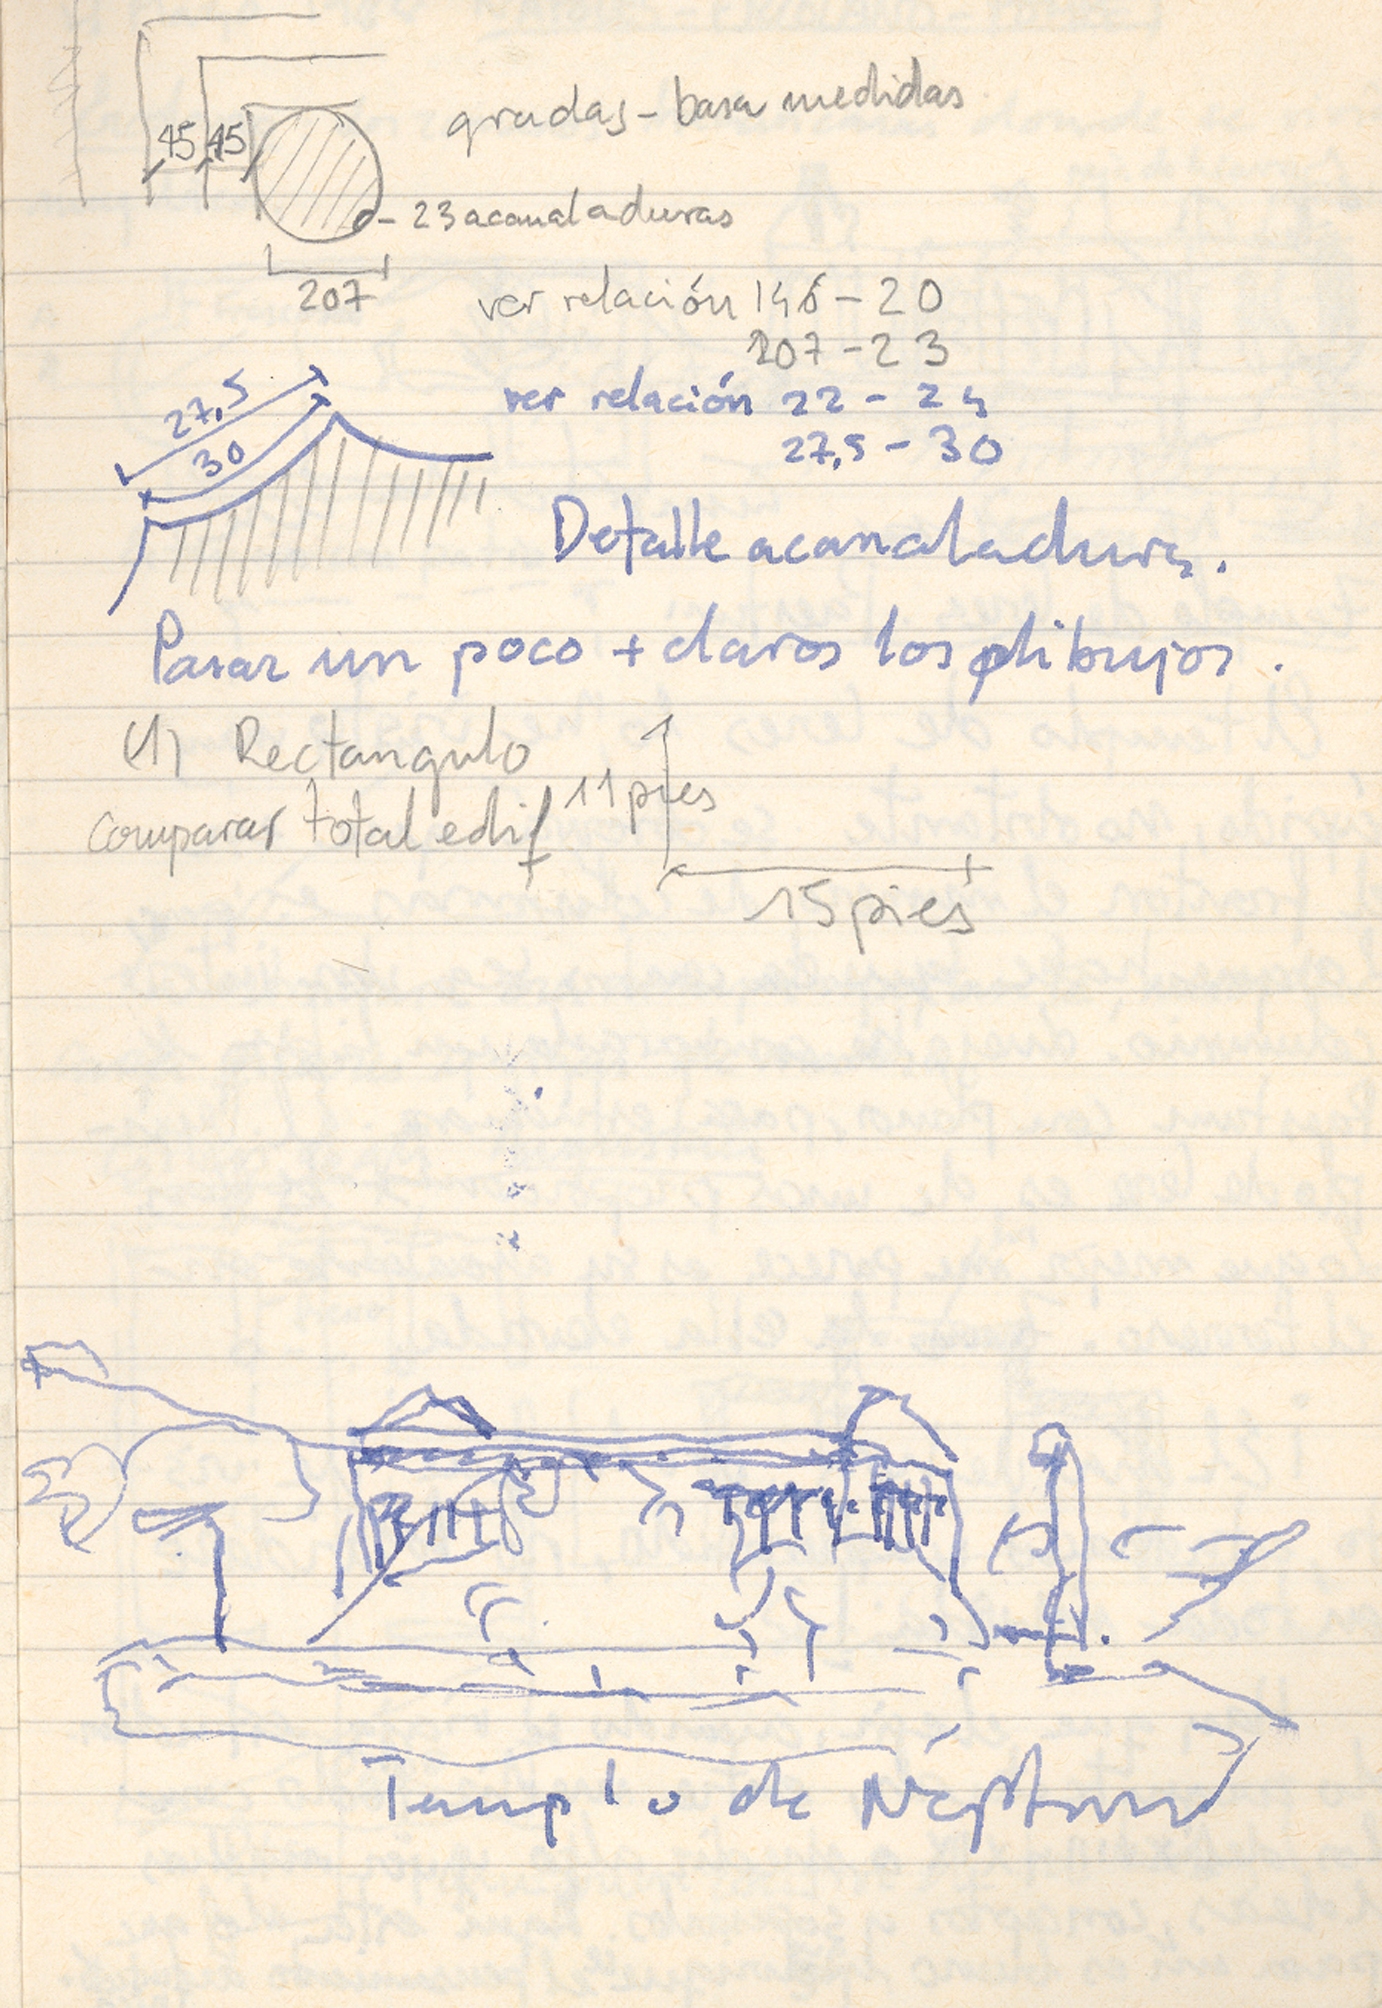 gradas - basa medidas
45 45
23 acanaladuras
207
ver relación 146 - 20
207 - 23
27,5
30
ver relación 22 - 24
27,5 - 30
Detalle acanaladura.
Pasar un poco + claros los dibujos.
(1) Rectangulo
comparar total edif
11 pies
15 pies
Templo de Neptuno